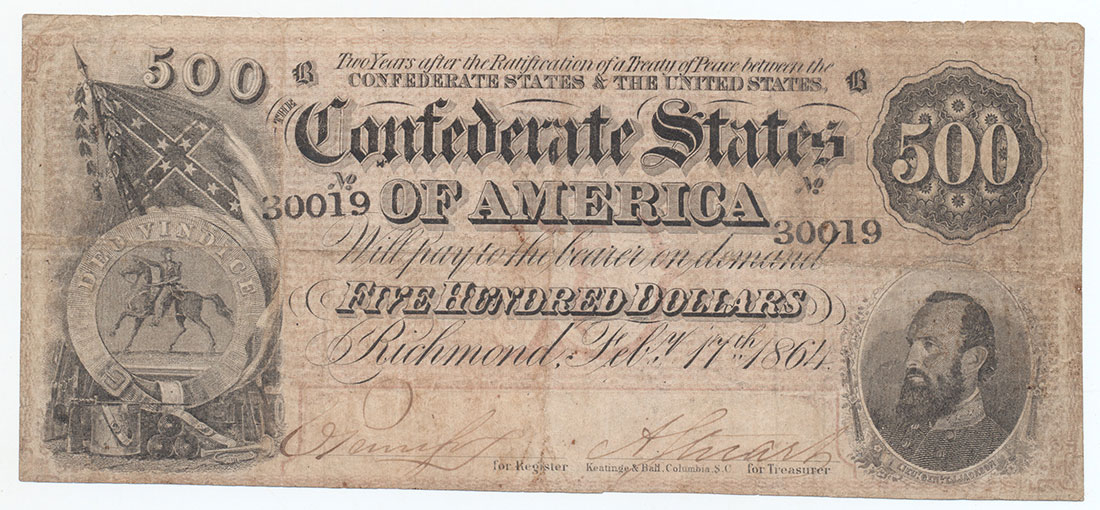 500
B
Two Years after the Ratification of a Treaty of Peace between the
B
CONFEDERATE STATES & THE UNITED STATES,
Confederate States
500
No
No
30019
OF AMERICA
30019
DEO VINDICE
Will pay to the bearer on demand
FIVE HUNDRED DOLLARS
Richmond, Feby. 17th 1864
for Register
Keatinge & Ball, Columbia, S.C
for Treasurer
LIEUT. GEN'L T.J. JACKSON